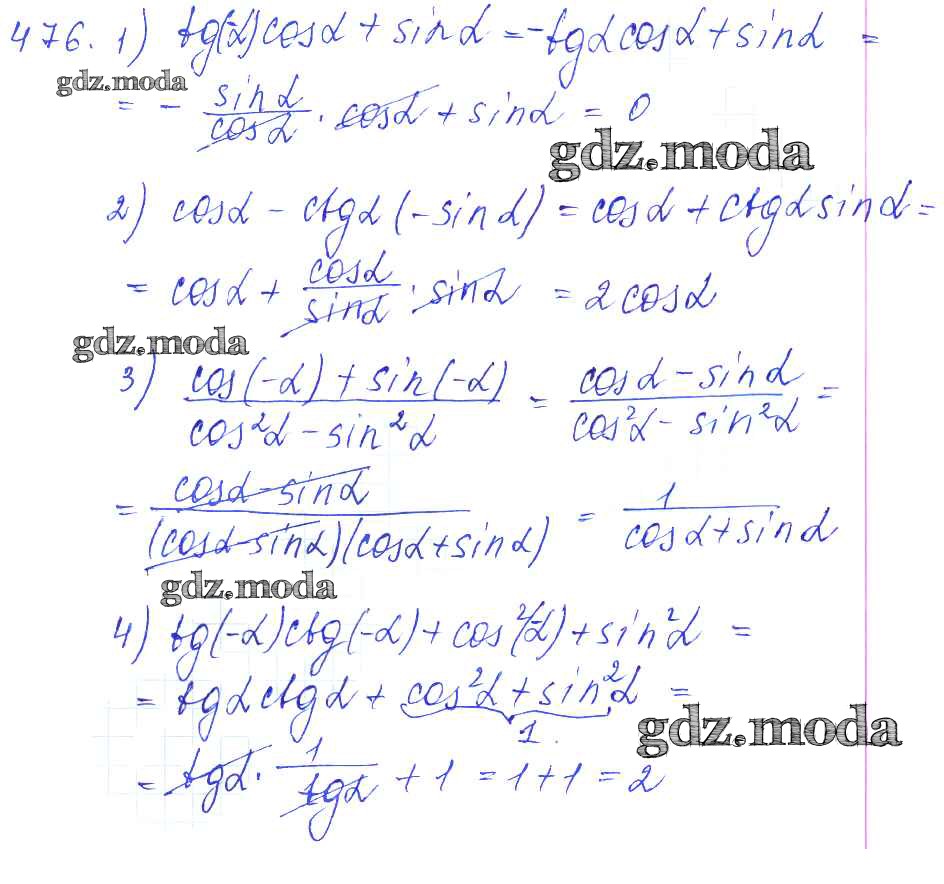 476. 1) tg(-α)cosα + sinα = -tgα cosα + sinα =
gdz.moda
= - sinα/cosα · cosα + sinα = 0
gdz.moda
2) cosα - ctgα (-sinα) = cosα + ctgα sinα =
= cosα + cosα/sinα · sinα = 2cosα
gdz.moda
3) (cos(-α) + sin(-α))/(cos²α - sin²α) = (cosα - sinα)/(cos²α - sin²α) =
= (cosα - sinα)/((cosα - sinα)(cosα + sinα)) = 1/(cosα + sinα)
gdz.moda
4) tg(-α)ctg(-α) + cos²(-α) + sin²α =
= tgα ctgα + cos²α + sin²α =
1.
gdz.moda
= tgα · 1/tgα + 1 = 1 + 1 = 2